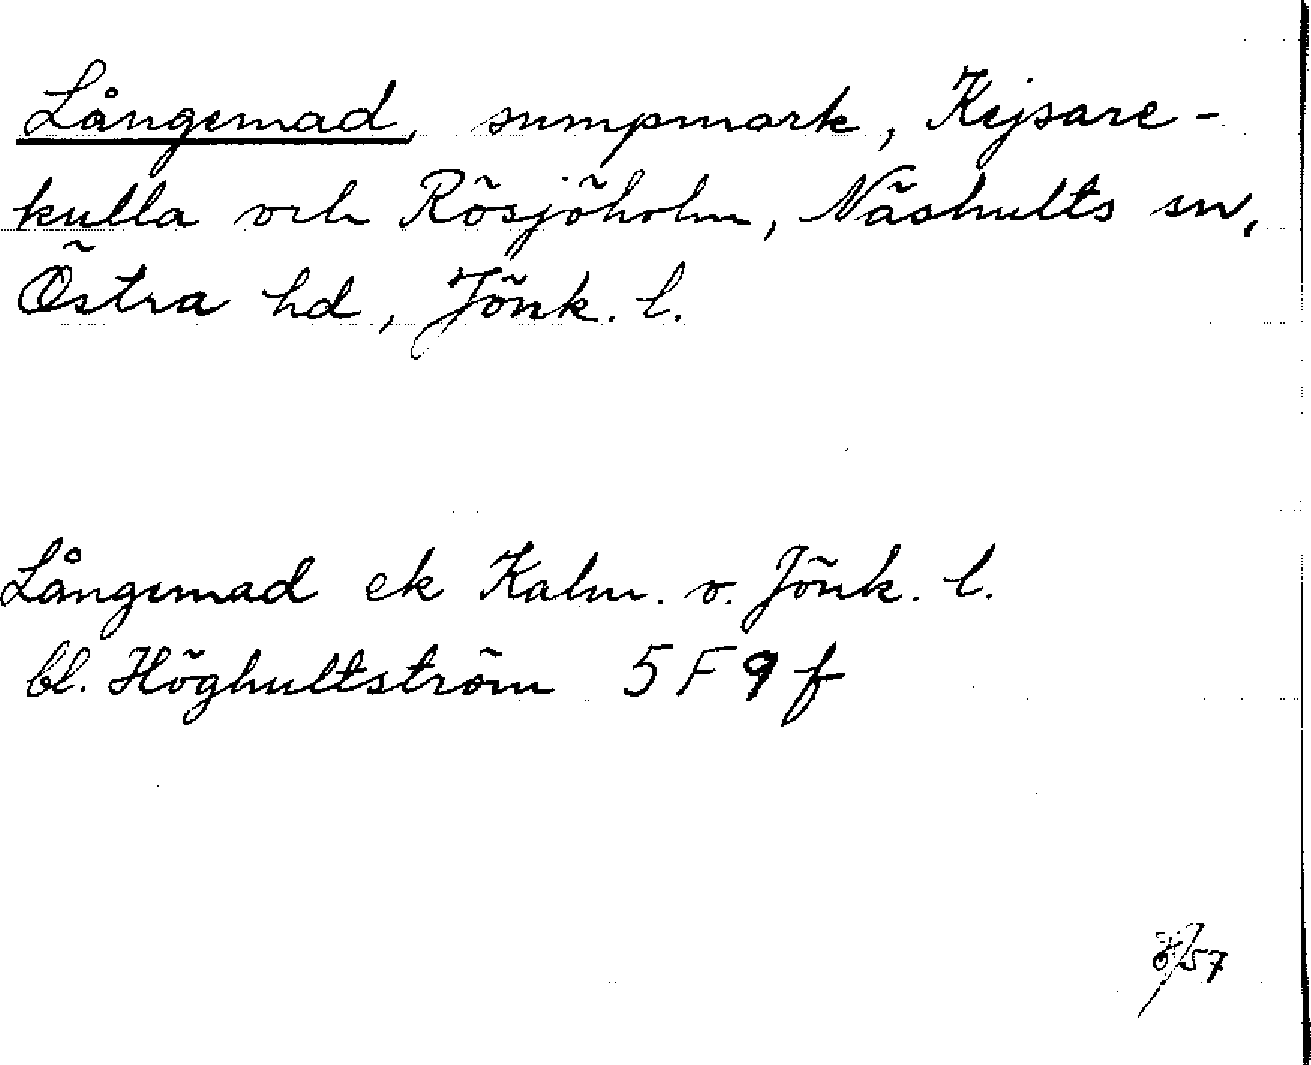 Långemad, sumpmark, Kejsare-
kulla och Rösjöholm, Näshults sn,
Östra hd, Jönk. l.
Långemad ek Kalm. o. Jönk. l.
bl. Höghultström 5F9f
57